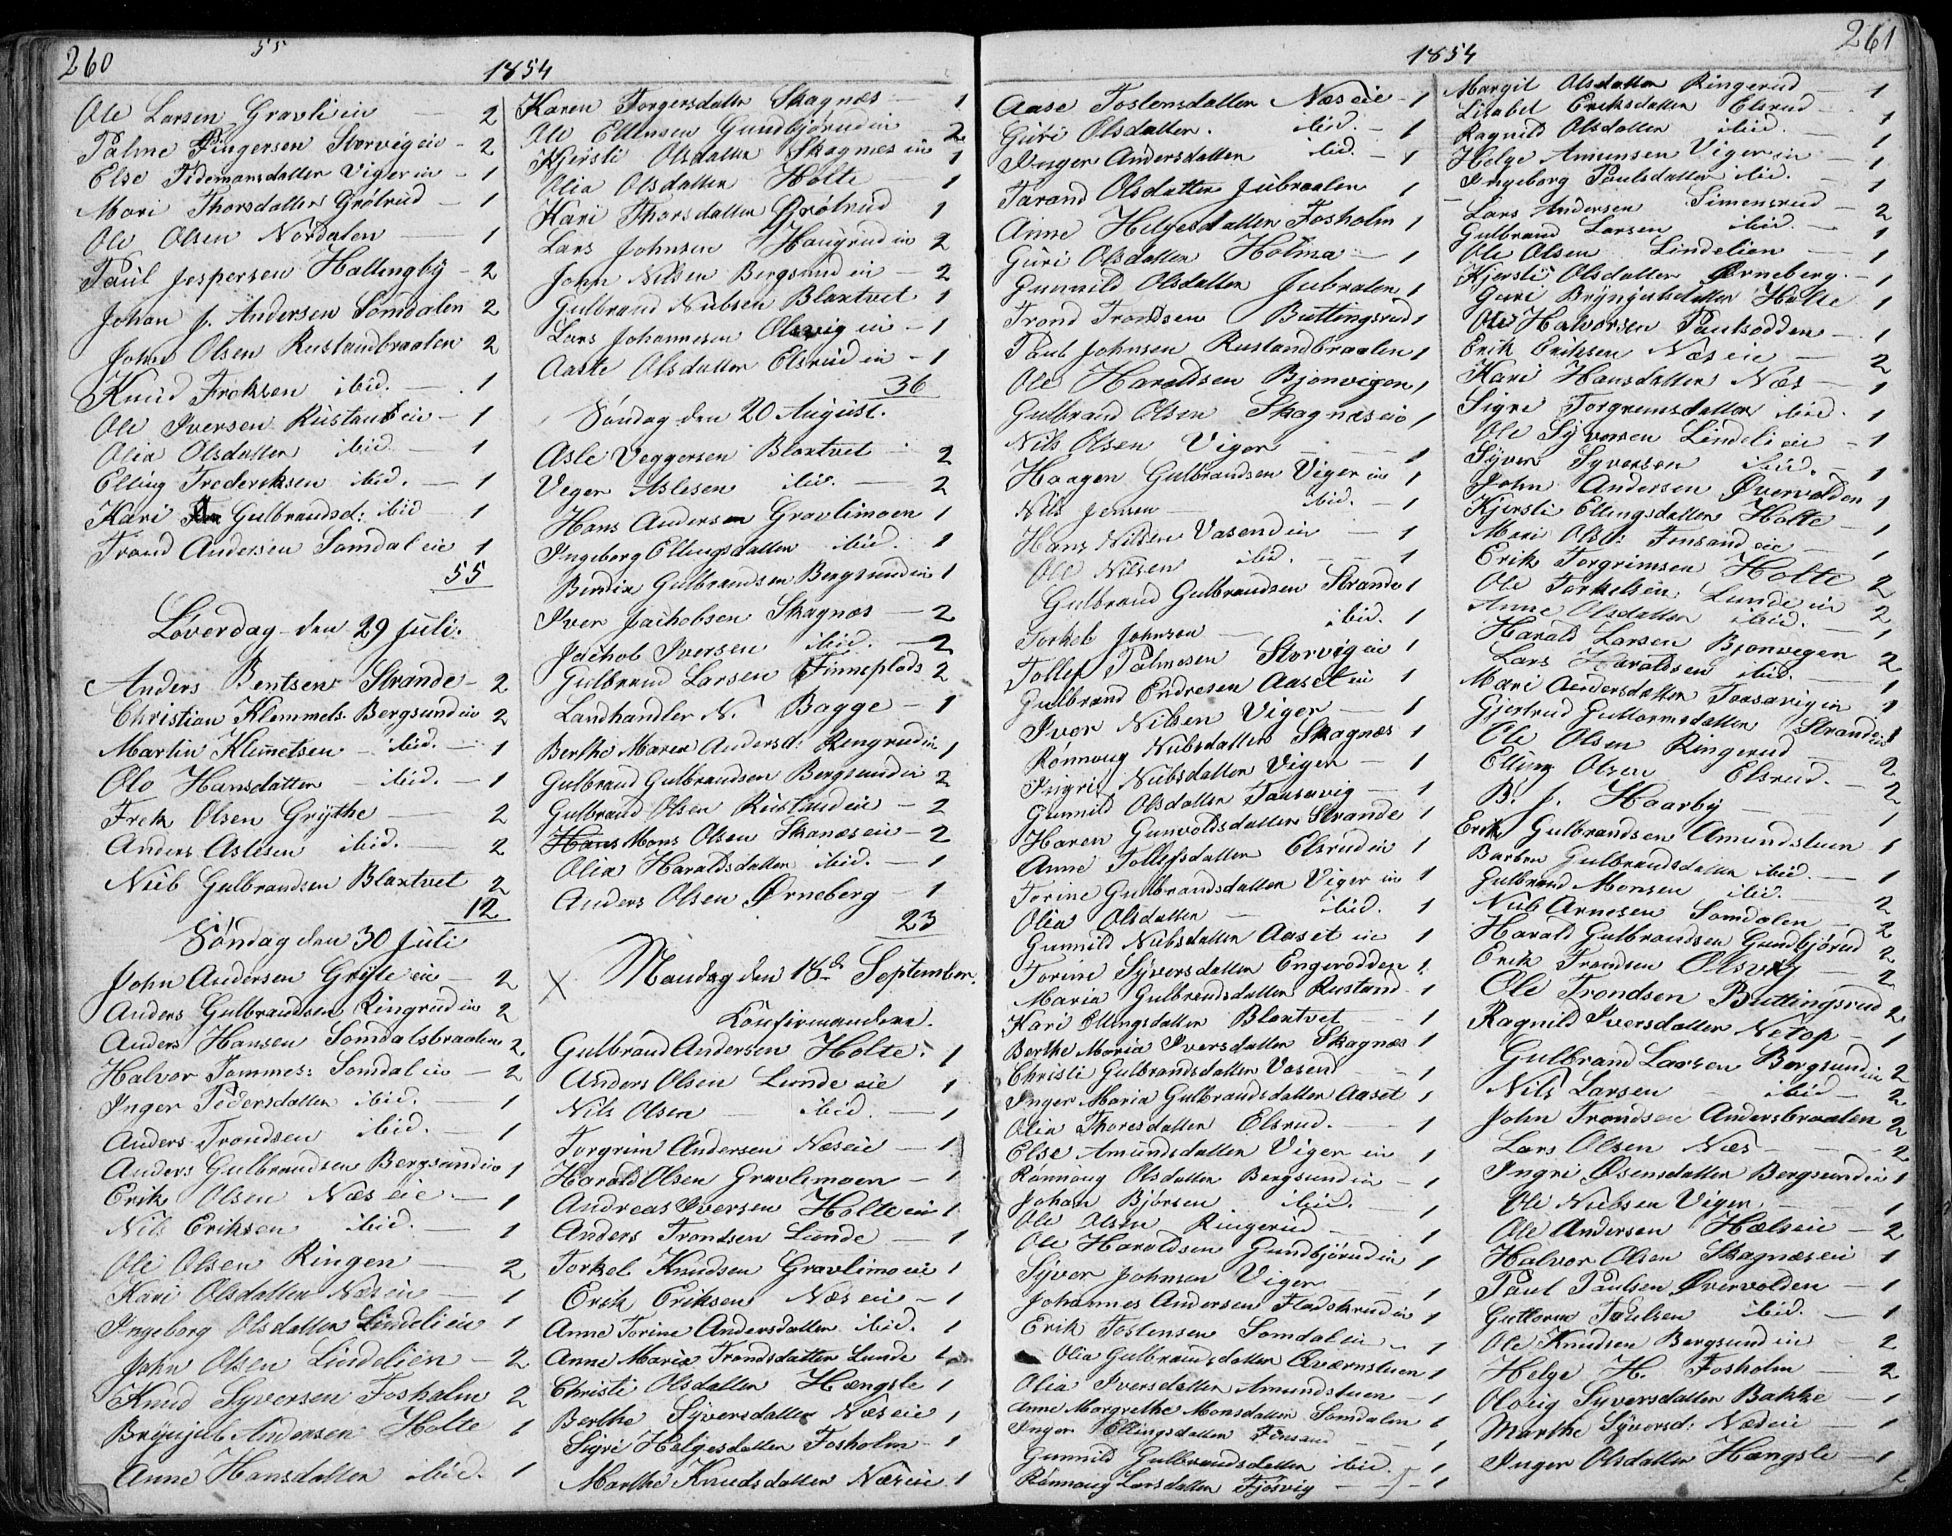 260
55
1854
Ole Larsen Gravli ein — 2
Palme Ringersen Storvig eie - 2
Else Tidemansdatter Viger in - 1
Mari Thorsdatter Grøtrud — 1
Ole Olsen Nordalen — 1
Paul Jespersen Hallingby - 2
Johan J. Andersen Somdalen 2
John Olsen Rustandbraaten 2
Knud Freksen ibid. — 1
Ole Iversen Rustand eie - 1
Olia Olsdatter ibid. — 1
Elling Frederiksen ibid. — 1
Kari Gulbrandsd: ibid - 1
Trond Andersen Somdal eie 1
55
Løverdag den 29 Juli.
Anders Bentsen Strande - 2
Christian Klemmets. Bergsund in 2
Martin Klemetsen - ibid. - 1
Ole Hansdatter - ibid. - 1
Frek Olsen Grythe — 2
Anders Aslesen ibid. — 2
Niels Gulbrandsen Blaxtvet 2
12
Søndag den 30 Juli
John Andersen Gryte ein — 2
Anders Gulbrandsen Ringrud in 2
Anders Hansen Somdalsbraaten 2
Halvor Tommes: Somdal in - 2
Inger Pedersdatter ibid. — 1
Anders Trondsen ibid. — 1
Anders Gulbrandsen Bergsund in 1
Erik Olsen Næs eie. — 1
Nils Eriksen ibid. — 1
Ole Olsen Ringen — 2
Kari Olsdatter Næs eie — 1
Ingeborg Olsdatter Lindeli ein 1
John Olsen Lindelien — 2
Knud Syversen Fosholm 2
Brynjul Andersen Holte 1
Anne Hansdatter ibid. 1
Karen Torgersdatter Skagnæs — 1
Ole Ellensen Gundbjørud in 2
Kjersti Olsdatter Skagnæs in 1
Olia Olsdatter Holte 1
Kari Thorsdatter Grøtrud 1
Lars Johnsen Haugrud in 2
John Nilsen Bergsund ein — 2
Gulbrand Nielsen Blaxtvet 1
Lars Johannesen Olsvig in - 1
Aaste Olsdatter Elsrud in - 1
36
Søndag den 20 August.
Asle Veggersen Blaxtvet — 2
Veger Aslesen ibid. — 2
Hans Andersen Gravlimoen 1
Ingeborg Ellingsdatter ibid. 1
Bendix Gulbrandsen Bergsund in 1
Iver Jachobsen Skagnæs — 2
Jachob Iversen ibid. — 2
Gulbrand Larsen Finneplads 2
Landhandler N. Bagge — 1
Berthe Maren Andersd: Rengrud in 1
Gulbrand Gulbrandsen Bergsund in 2
Gulbrand Olsen Rustand eie — 2
Hans Mons Olsen Skanæs eie - 2
Olia Haraldsdatter ibid. — 1
Anders Olsen Ørneberg — 1
23
X Mandag den 18de September.
Konfirmandere.
Gulbrand Andersen Holte. 1
Anders Olsen Lunde eie 1
Nils Olsen — ibid. — 1
Torgrim Andersen Næs eie — 1
Harald Olsen Gravlimoen — 1
Andreas Iversen Holte ein 1
Anders Trondsen Lunde — 1
Torkel Knudsen Gravlimo eie 1
Erik Eriksen Næs eie - 1
Anne Torine Andersdatter ibid. 1
Anne Maria Trondsdatter Lunde 1
Christi Olsdatter Hængsle 1
Berthe Syversdatter Næs eie 1
Sigri Helgesdatter Fosholm - 1
Marthe Knudsdatter Næs eie 1
261
1854
Aase Tostensdatter Næs eie - 1
Guri Olsdatter. ibid. — 1
Inger Andersdatter ibid. - 1
Tarand Olsdatter Jubraaten 1
Anne Helgesdatter Fosholm 1
Guri Olsdatter Holma — 1
Gunnild Olsdatter Jubraten 1
Trond Trondsen Buttingsrud 1
Paul Johnsen Rustandbraaten 1
Ole Haraldsen Bjonvigen 1
Gulbrand Olsen Skagnæs eie 1
Nils Olsen Viger — 1
Haagen Gulbrandsen Viger in 1
Nils Jensen — ibid. — 1
Hans Nilsen Vasend in — 1
Ole Nilsen ibid. — 1
Gulbrand Gulbrandsen Strande 1
Torkel Johnsen — ibid. 1
Tollef Palmesen Storvig ein 1
Gulbrand Endresen Aaset in 1
Iver Nilsen Viger — 1
Rønnoug Nielsdatter Skagnæs 1
Ingri Nielsdatter Viger — 1
Gunnild Olsdatter Tansavig — 1
Haren Gunvoldsdatter Strande 1
Anne Tollefsdatter Elsrud in 1
Torine Gulbrandsdatter Viger in 1
Olia Olsdatter — ibid. 1
Gunnild Nielsdatter Aaset in 1
Torine Syversdatter Engerodden 1
Maria Gulbrandsdatter Rustand 1
Kari Ellingsdatter Blaxtvet — 1
Berthe Maria Iversdatter Skagnæs 1
Christi Gulbrandsdatter Vasend — 1
Inger Maria Gulbrandsdatter Aaset 1
Olia Thoresdatter Elsrud. — 1
Else Amundsdatter Viger in 1
Rønnoug Olsdatter Bergsund in — 1
Johan Bjørsen ibid. — 1
Ole Olsen Ringerud — 1
Ole Haraldsen Gundbjørud in 1
Syver Johnsen Viger — 1
Johannes Andersen Fladskrud in 1
Erik Tostensen Somdal in — 1
Olia Gulbrandsdatter Qværnstuen 1
Olia Iversdatter Amundstuen — 1
Anne Margrethe Monsdatter Somdalen 1
Inger Ellingsdatter Finsand — 1
Gunnild Gulbrandsdatter ibid. — 1
Rønnoug Larsdatter Fjøsvig — 1
Margit Olsdatter Ringerud — 1
Lisabet Eriksdatter Elsrud — 1
Ragnild Olsdatter ibid. — 1
Helge Amunsen Viger in — 1
Ingeborg Paulsdatter ibid. — 1
Lars Andersen Simensrud — 2
Gulbrand Larsen ibid. — 1
Ole Olsen Lindelien — 1
Kjersti Olsdatter Ørneberg. — 1
Guri Brynjulsdatter Holte 1
Ole Halvorsen Paulsodden — 1
Erik Eriksen Næs eie — 2
Kari Hansdatter Næs — 1
Sigri Torgrimsdatter ibid. 1
Ole Syversen Lindeli ein — 1
Syver Syversen ibid. — 1
John Andersen Øvervolden 1
Kjersti Ellingsdatter Holte — 1
Mari Olsd: Finsand eie — 1
Erik Torgrimsen Holte 2
Ole Torkelsen Lunde in 2
Anne Olsdatter ibid. — 1
Harald Larsen Bjonvegen 2
Lars Haraldsen ibid. — 1
Mari Andersdatter Tansavig in 1
Gjertrud Guttormsdatter Strande in 1
Ole Olsen Ringerud — 2
Elling Olsen Elsrud. — 2
B. J. Haarby — 1
Erik Gulbrandsen Amundstuen 1
Barbro Gulbrandsdatter ibid. — 1
Gulbrand Monsen ibid. — 2
Niels Arnesen Somdalen — 2
Harald Gulbrandsen Gundbjørud 2
Erik Trondsen Olsvig 2
Ole Trondsen Buttingsrud 2
Ragnild Iversdatter Netop — 1
Gulbrand Larsen Bergsund in 2
Nils Larsen - ibid - 2
John Trondsen Andersbraaten 2
Lars Olsen Næs — 2
Ingri Olsensdatter Bergsund in 1
Ole Nielsen Viger — 1
Ole Andersen Hæls eie — 2
Halvor Olsen Skagnæs ein 1
Paul Paulsen Øvervolden — 1
Guttorm Paulsen ibid. — 1
Ole Knudsen Bergsund in — 2
Helge H. Fosholm — 2
Olouig Syversdatter Bakke — 1
Marthe Syversd: Næs eie — 1
Inger Olsdatter Hængsle — 1